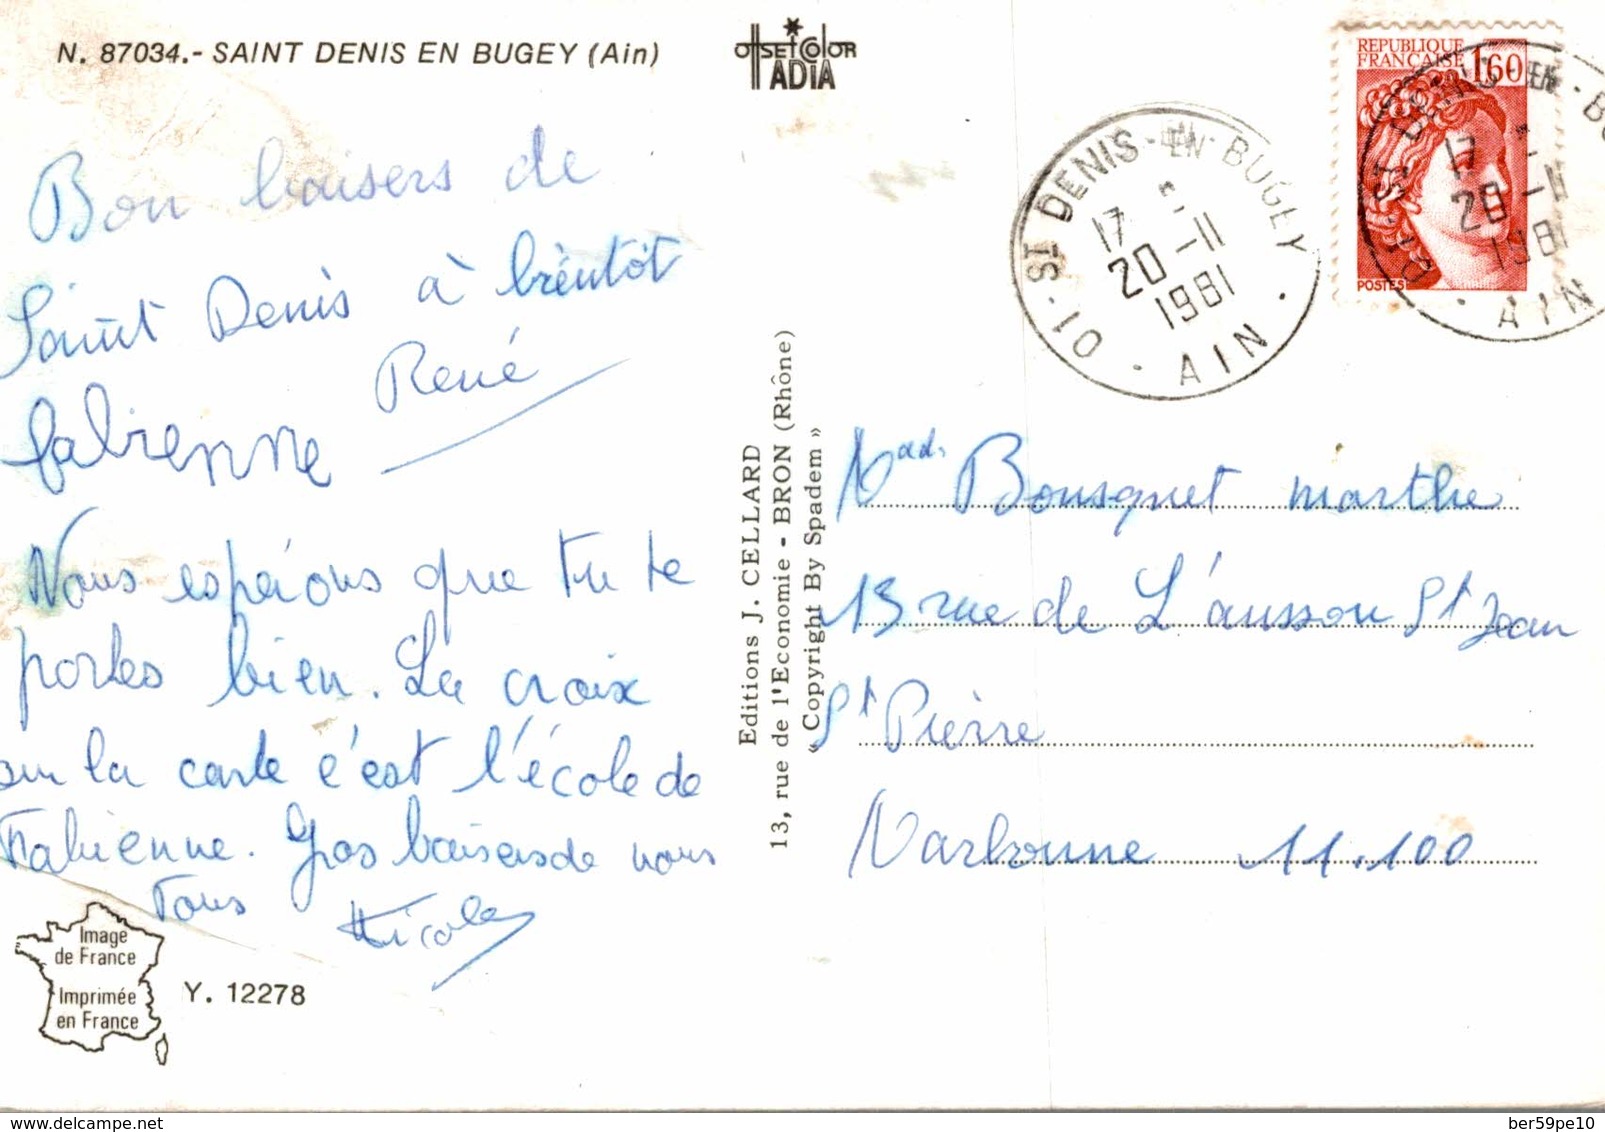 N. 87034.- SAINT DENIS EN BUGEY (Ain)
Bon baisers de
Saint Denis à bientôt
René
fabienne
Nous espérons que tu te
portes bien. La croix
sur la carte c'est l'école de
Fabienne. Gros baisers de nous
Tous
Nicole
Image
de France
Imprimée
en France
Y. 12278
OffSEt COlOR
ADIA
Editions J. CELLARD
13, rue de l'Economie - BRON (Rhône)
« Copyright By Spadem »
REPUBLIQUE
FRANCAISE
1,60
POSTES
01 - ST DENIS - EN - BUGEY
17
20 - 11
1981
· AIN ·
01 - ST DENIS - EN - BU
17
20 - 11
1981
· AIN
Mad. Bousquet marthe
13 rue de L'ausson St Jean
St Pierre
Narbonne 11.100
www.delcampe.net
ber59pe10